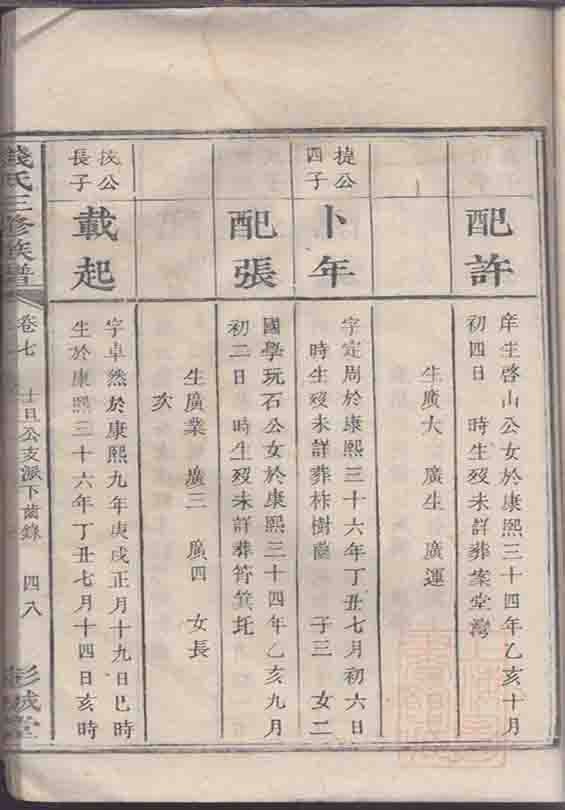 配許
庠生啓山公女於康熙三十四年乙亥十月
初四日　時生歿未詳葬案堂灣
生廣大　廣生　廣運
提公
四子
卜年
字定周於康熙三十六年丁丑七月初六日
時生歿未詳葬柞樹崙　子三　女二
配張
國學玩石公女於康熙三十四年乙亥九月
初二日　時生歿未詳葬筲箕坵
生廣業　廣三　廣四　女長
次
長子
載起
字卓然於康熙九年庚戌正月十九日巳時
生於康熙三十六年丁丑七月十四日亥時
錢氏三修族譜
卷七　士旦公支派下齒錄　四八
彭城堂